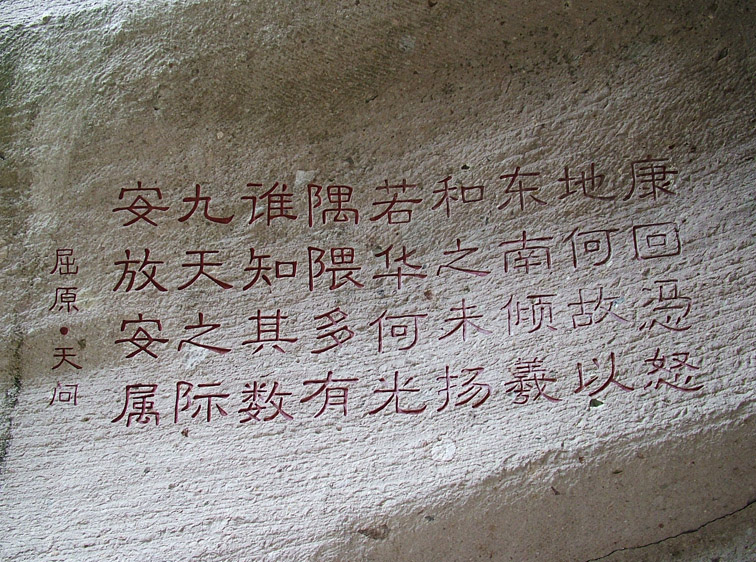 康回憑怒
地何故以
东南倾羲
和之未扬
若华何光
隅隈多有
谁知其数
九天之际
安放安属
屈原•天问